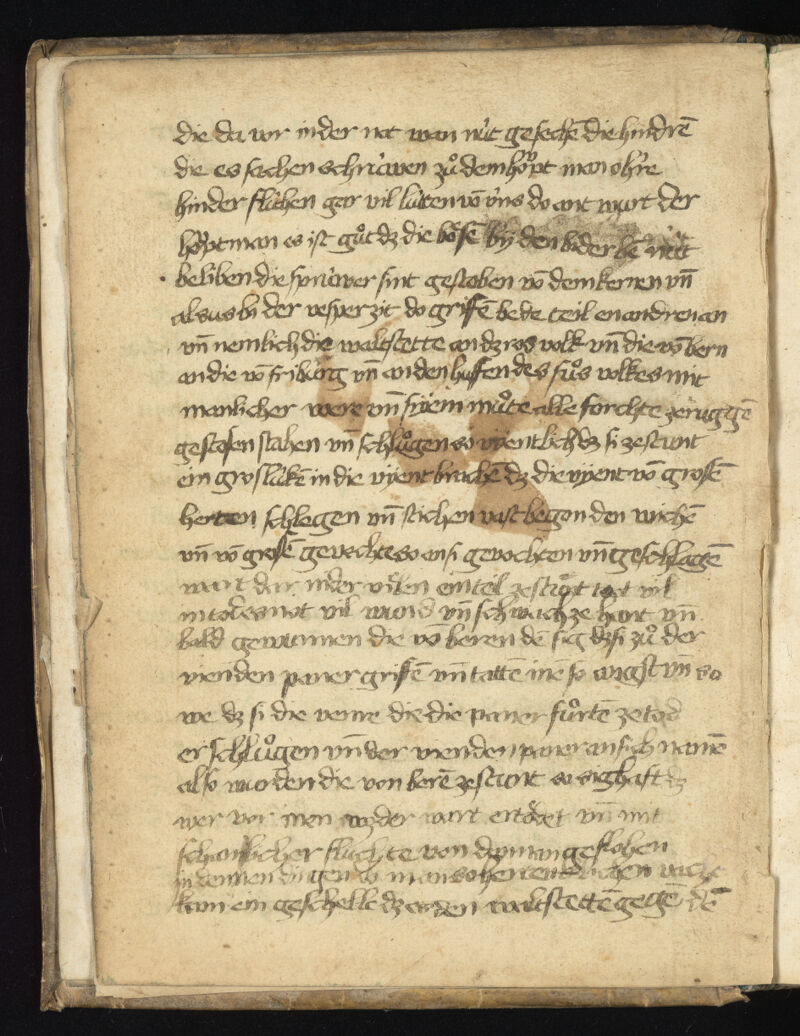 die da vor in der not wan nüt gesechē die hindrē
die es sachen schrüwen zuͦ dem hoͧpt man o h're
hinder fliehen gar vil lüten vō üns do ant wurt der
hoͧptman es ist guͦt dz die boͤsē by den biderbē nüt
beliben die sprüwer sint gestoben vō dem kernen vn̄
alsus bi der vesper zit do griffē bede teil en andren an
vn̄ nemlich die waltstette an dz ros volk vn̄ die vō bern
an die vō friburg vn̄ an den huffen des fuͦs volkes mit
manlicher were vn̄ friem muͦte alle forchte ze ruggē
gestosen stahen vn̄ schluͦgen so vientlich dz si ze stunt
ein gros lükē in die vient brachē dz die vient vō grosē
herten schlegen vn̄ stichen vast begonden wichē
vn̄ vō grosē gevechte so an si gevochten vn̄ geschlagē
wart dar in der vilen ein teil ze stunt tot vil
in todes not vil wund vn̄ schwach ze hant vn̄
bald gewunnen die vō beren dē sig dz si zuͦ der
vienden paner griffē vn̄ tattē inē so angst vn̄ so
we dz si die venre die die paner fuͦrtē ze tod
erschluͦgen vn̄ der vienden paner an sich namē
also wurden die von berē ze stunt so sighaft dz
wer vor inen wz der wart ertoͤtet vn̄ mit
schantlicher fluchte von dannan geflohen
in dennen dingen
kam ein geschelle dz an den waltstettē gegē dē